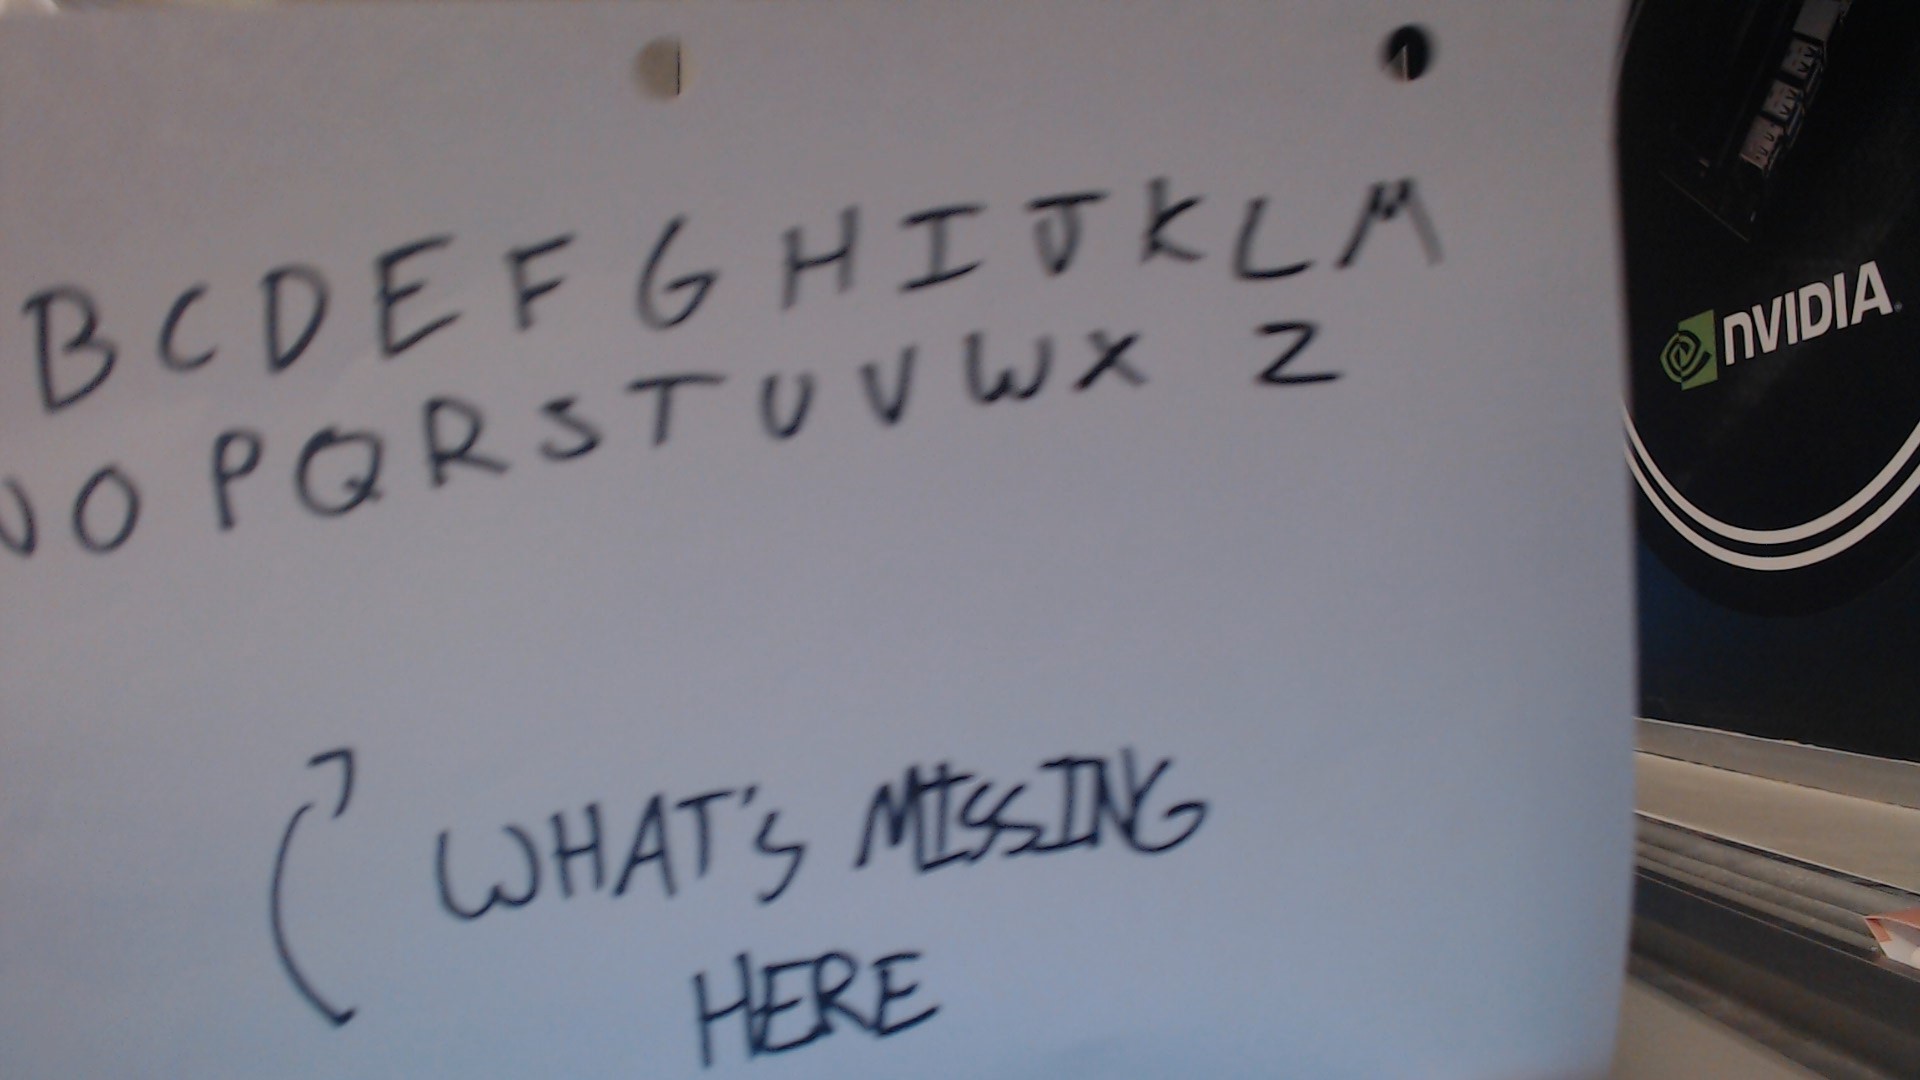 B C D E F G H I J K L M
N O P Q R S T U V W X Z
WHAT'S MISSING
HERE
NVIDIA